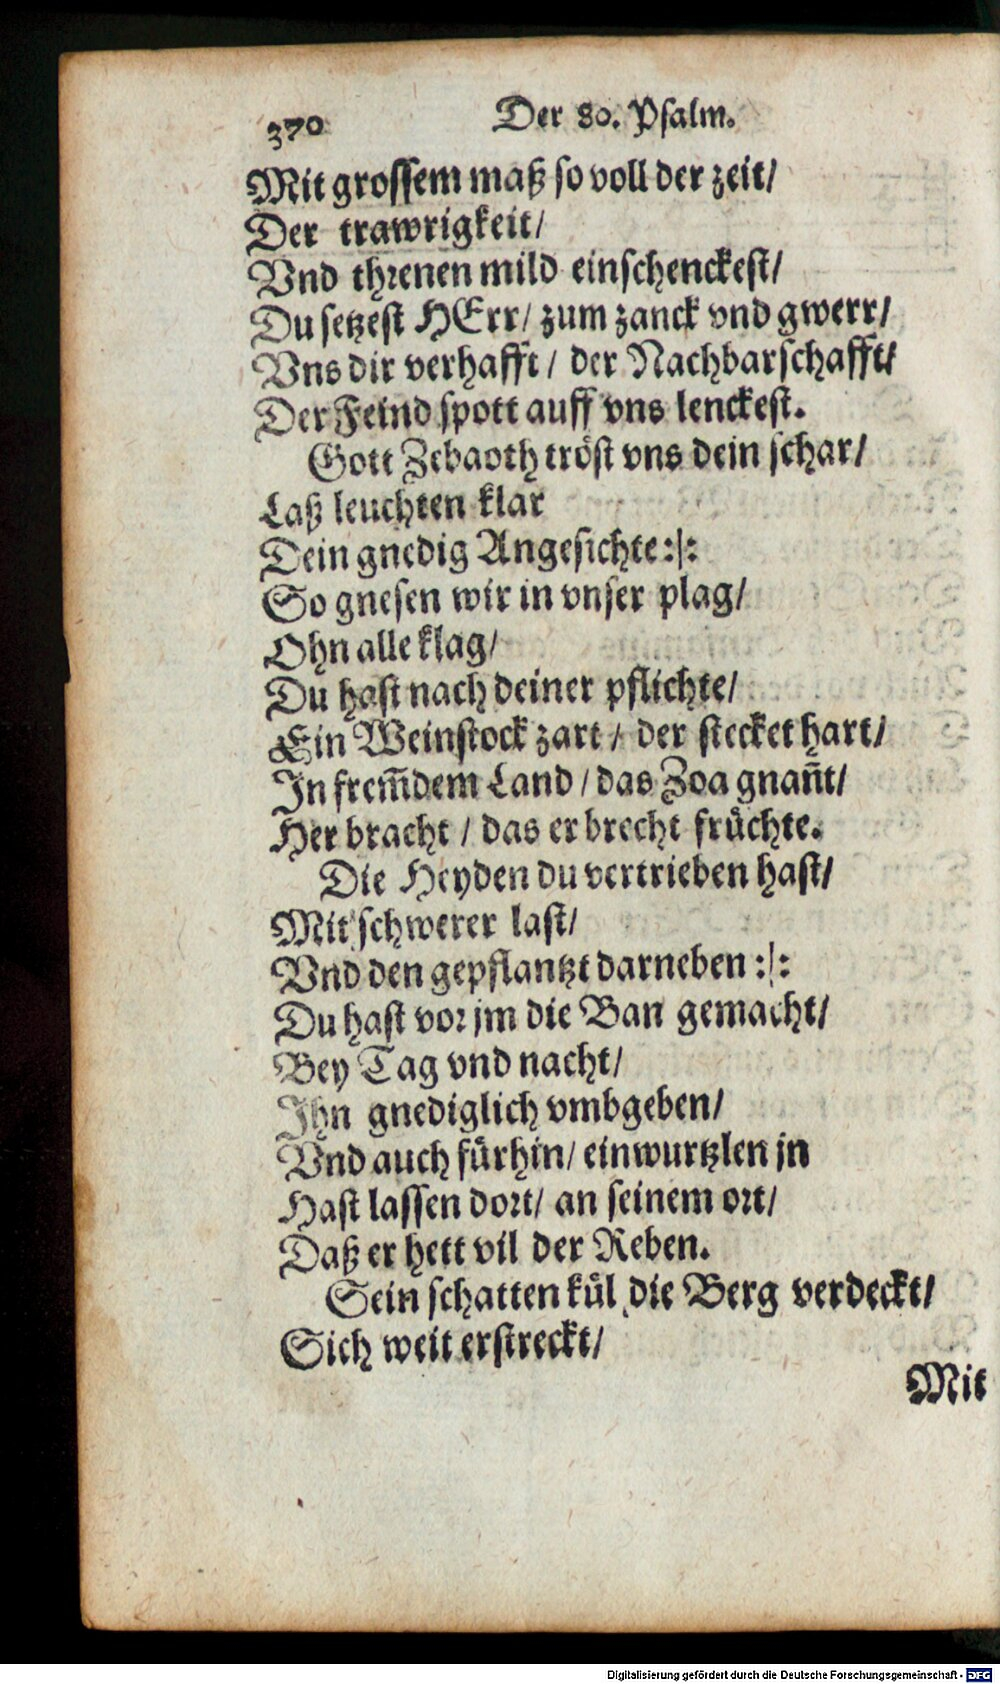 370 Der 80. Psalm.
Mit grossem maß so voll der zeit/
Der trawrigkeit/
Vnd threnen mild einschenckest/
Du setzest HErr/ zum zanck vnd gwerr/
Vns dir verhafft/ der Nachbarschafft/
Der Feind spott auff vns lenckest.
Gott Zebaoth tröst vns dein schar/
Laß leuchten klar
Dein gnedig Angesichte :|:
So gnesen wir in vnser plag/
Ohn alle klag/
Du hast nach deiner pflichte/
Ein Weinstock zart/ der stecket hart/
In frem̃dem Land/ das Zoa gnañt/
Her bracht/ das er brecht früchte.
Die Heyden du vertrieben hast/
Mit schwerer last/
Vnd den gepflantzt darneben :|:
Du hast vor jm die Ban gemacht/
Bey Tag vnd nacht/
Ihn gnediglich vmbgeben/
Vnd auch fürhin/ einwurtzlen jn
Hast lassen dort/ an seinem ort/
Daß er hett vil der Reben.
Sein schatten kül die Berg verdeckt/
Sich weit erstreckt/
Mit
Digitalisierung gefördert durch die Deutsche Forschungsgemeinschaft - DFG